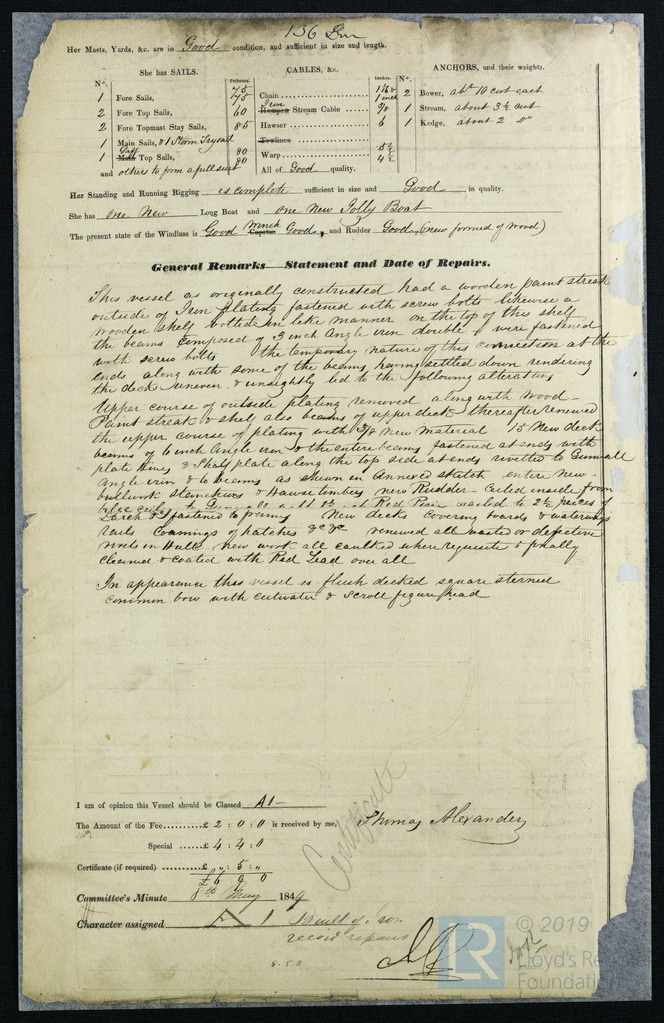 136 Irn
Her Masts, Yards, &c. are in Good condition, and sufficient in size and length.
She has SAILS.
CABLES, &c.
ANCHORS, and their weights.
N°.
Fathoms.
Inches.
N°.
1 Fore Sails,
2 Fore Top Sails,
2 Fore Topmast Stay Sails,
1 Main Sails, & 1 Storm Trysail
1 Main Gaff Top Sails,
and others to form a full suit
Chain 75 1 1/16
75 1 inch
Hempen Iron Stream Cable 60
Hawser 85 6
Towlines
Warp 80 5 1/2
80 4 1/2
All of Good quality.
2 Bower, abt 10 cwt each
1 Stream, about 3 1/2 cwt
1 Kedge, about 2 Do
Her Standing and Running Rigging is complete sufficient in size and Good in quality.
She has one New Long Boat and one New Jolly Boat
The present state of the Windlass is Good Capstan Winch Good, and Rudder Good, (new formed of wood)
General Remarks—Statement and Date of Repairs.
This vessel as originally constructed had a wooden paint streak
outside of Iron plating fastened with screw bolts likewise a
wooden shelf bolted in like manner on the top of this shelf
the beams composed of 3 inch Angle iron double & were fastened
with screw bolts the temporary nature of this connection at the
ends along with some of the beams having settled down rendering
the deck uneven & unsightly led to the following alterations
Upper course of outside plating removed along with wood
Paint streak & shelf also beams of upper deck thereafter renewed
the upper course of plating with 3/8 new material 15 New deck
beams of 6 inch Angle iron & the entire beams fastened at ends with
plate knees & Shelf plate along the top side at ends rivetted to Gunwall
angle iron & to beams as shewn in Annexed sketch entire new
bullwork stancheons & Hause timbers new Rudder Ceiled inside from
to Red Pine
Larch & fastened to framing New decks Covering boards & waterways
rails Coamings of hatches &c &c renewed all wasted or defective
rivets in Hull new work all caulked where requisite & finally
cleaned & coated with Red Lead over all
In appearance this vessel is flush decked square sterned
common bow with cutwater & scroll figure head
Certificate
I am of opinion this Vessel should be Classed A1
The Amount of the Fee..........£ 2 : 0 : 0 is received by me, Thomas Alexander
Special .... £ 4 : 4 : 0
Certificate (if required) ........£ „ : 5 : „
£ 6 9 0
Committee's Minute 8th May 1849
Character assigned A 1 Built of Iron
record repairs
8.5.0
© 2019
LR
Lloyd's Register
Foundation